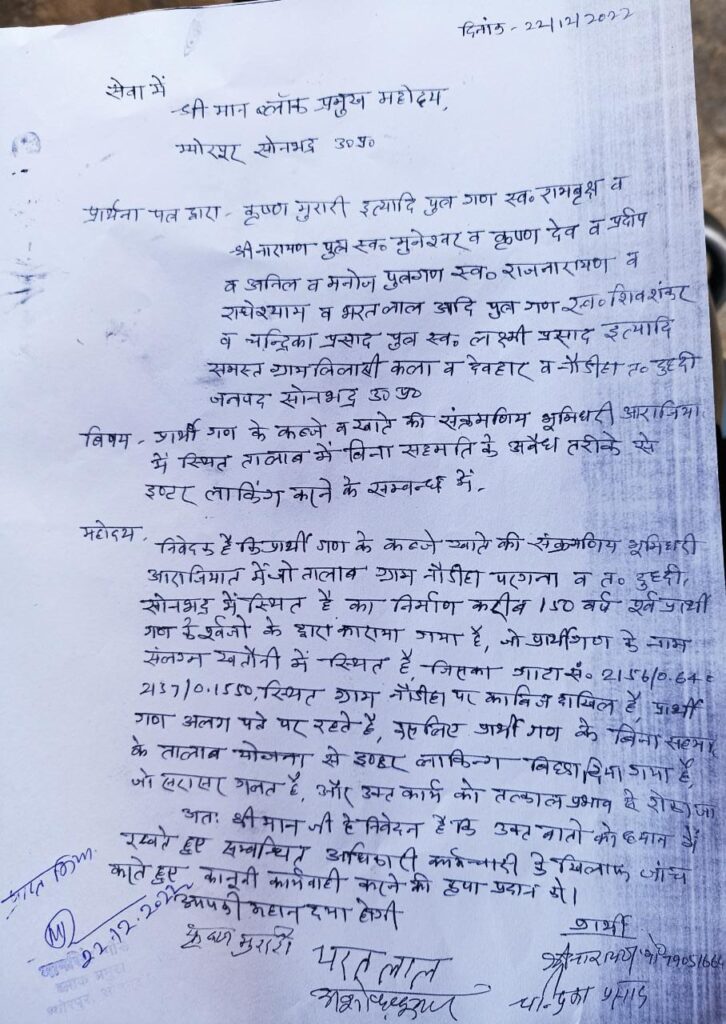 दिनांक - 22/12/2022
सेवा में
श्री मान ब्लॉक प्रमुख महोदय,
म्योरपुर सोनभद्र उ०प्र०
प्रार्थना पत्र द्वारा - कृष्ण मुरारी इत्यादि पुत्र गण स्व० रामबृक्ष व
श्री नारायण पुत्र स्व० मुनेश्वर व कृष्ण देव व प्रदीप
व अनिल व मनोज पुत्रगण स्व० राजनारायण व
राधेश्याम व भरत लाल आदि पुत्र गण स्व० शिवशंकर
व चन्द्रिका प्रसाद पुत्र स्व० लक्ष्मी प्रसाद इत्यादि
समस्त ग्राम विलासी कला व देवहार व नौडीहा त० दुद्दी
जनपद सोनभद्र उ०प्र०
विषय - प्रार्थी गण के कब्जे व खाते की संक्रमणिय भूमिधरी आराजियात
में स्थित तालाब में बिना सहमति के अवैध तरीके से
इण्टर लाकिंग करने के सम्बन्ध में.
महोदय,
निवेदक है कि प्रार्थी गण के कब्जे खाते की संक्रमणिय भूमिधरी
आराजियात में जो तालाब ग्राम नौडीहा परगना व त० दुद्दी,
सोनभद्र में स्थित है का निर्माण करीब 150 वर्ष पूर्व प्रार्थी
गण के पूर्वजो के द्वारा कराया गया है, जो प्रार्थीगण के नाम
संलग्न खतौनी में स्थित है, जिसका गाटा सं० 2156/0.64
2157/0.1550, स्थित ग्राम नौडीहा पर काबिज दाखिल है, प्रार्थी
गण अलग पते पर रहते है, इसलिए प्रार्थी गण के बिना सहमति
के तालाब योजना से इण्टर लाकिन्ग बिछा दिया गया है,
जो सरासर गलत है, और उक्त कार्य को तत्काल प्रभाव से रोका जा
अतः श्री मान जी से निवेदन है कि उक्त बातो को ध्यान में
रखते हुए सम्बन्धित अधिकारी कर्मचारी के खिलाफ जांच
करते हुए कानूनी कार्यवाही करने की कृपा प्रदान करे।
आपकी महान दया होगी
प्राप्त किया
22.12.2022
प्रार्थी
कृष्ण मुरारी
भरत लाल
श्री नारायण
चन्द्रिका प्रसाद